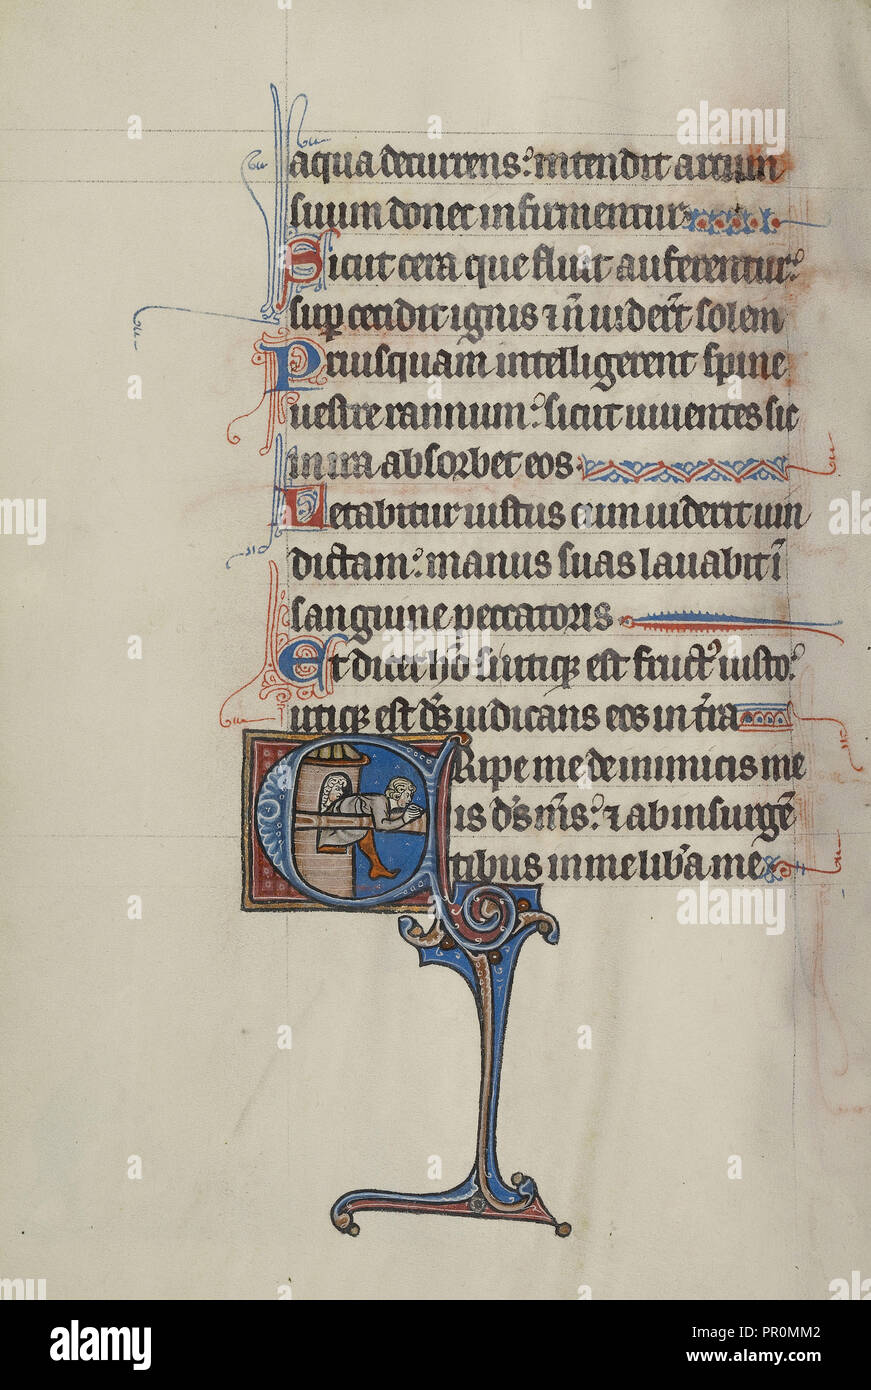 aqua decurrens: intendit arcum
suum donec infirmentur
Sicut cera que fluit auferentur:
sup cecidit ignis ⁊ n̄ uider̄t solem
Priusquam intelligerent spine
uestre rannum: sicut uiuentes sic
in ira absorbet eos
Letabitur iustus cum uiderit uin
dictam: manus suas lauabit ī
sanguine peccatoris
Et dicet hō si utiqꝫ est fruct᷒ iusto:
utiqꝫ est ds̄ iudicans eos in t̄ra
ERipe me de inimicis me
is ds̄ ms̄: ⁊ ab insurgen̄
tibus in me lib̄a me
alamy
Image ID: PR0MM2
www.alamy.com